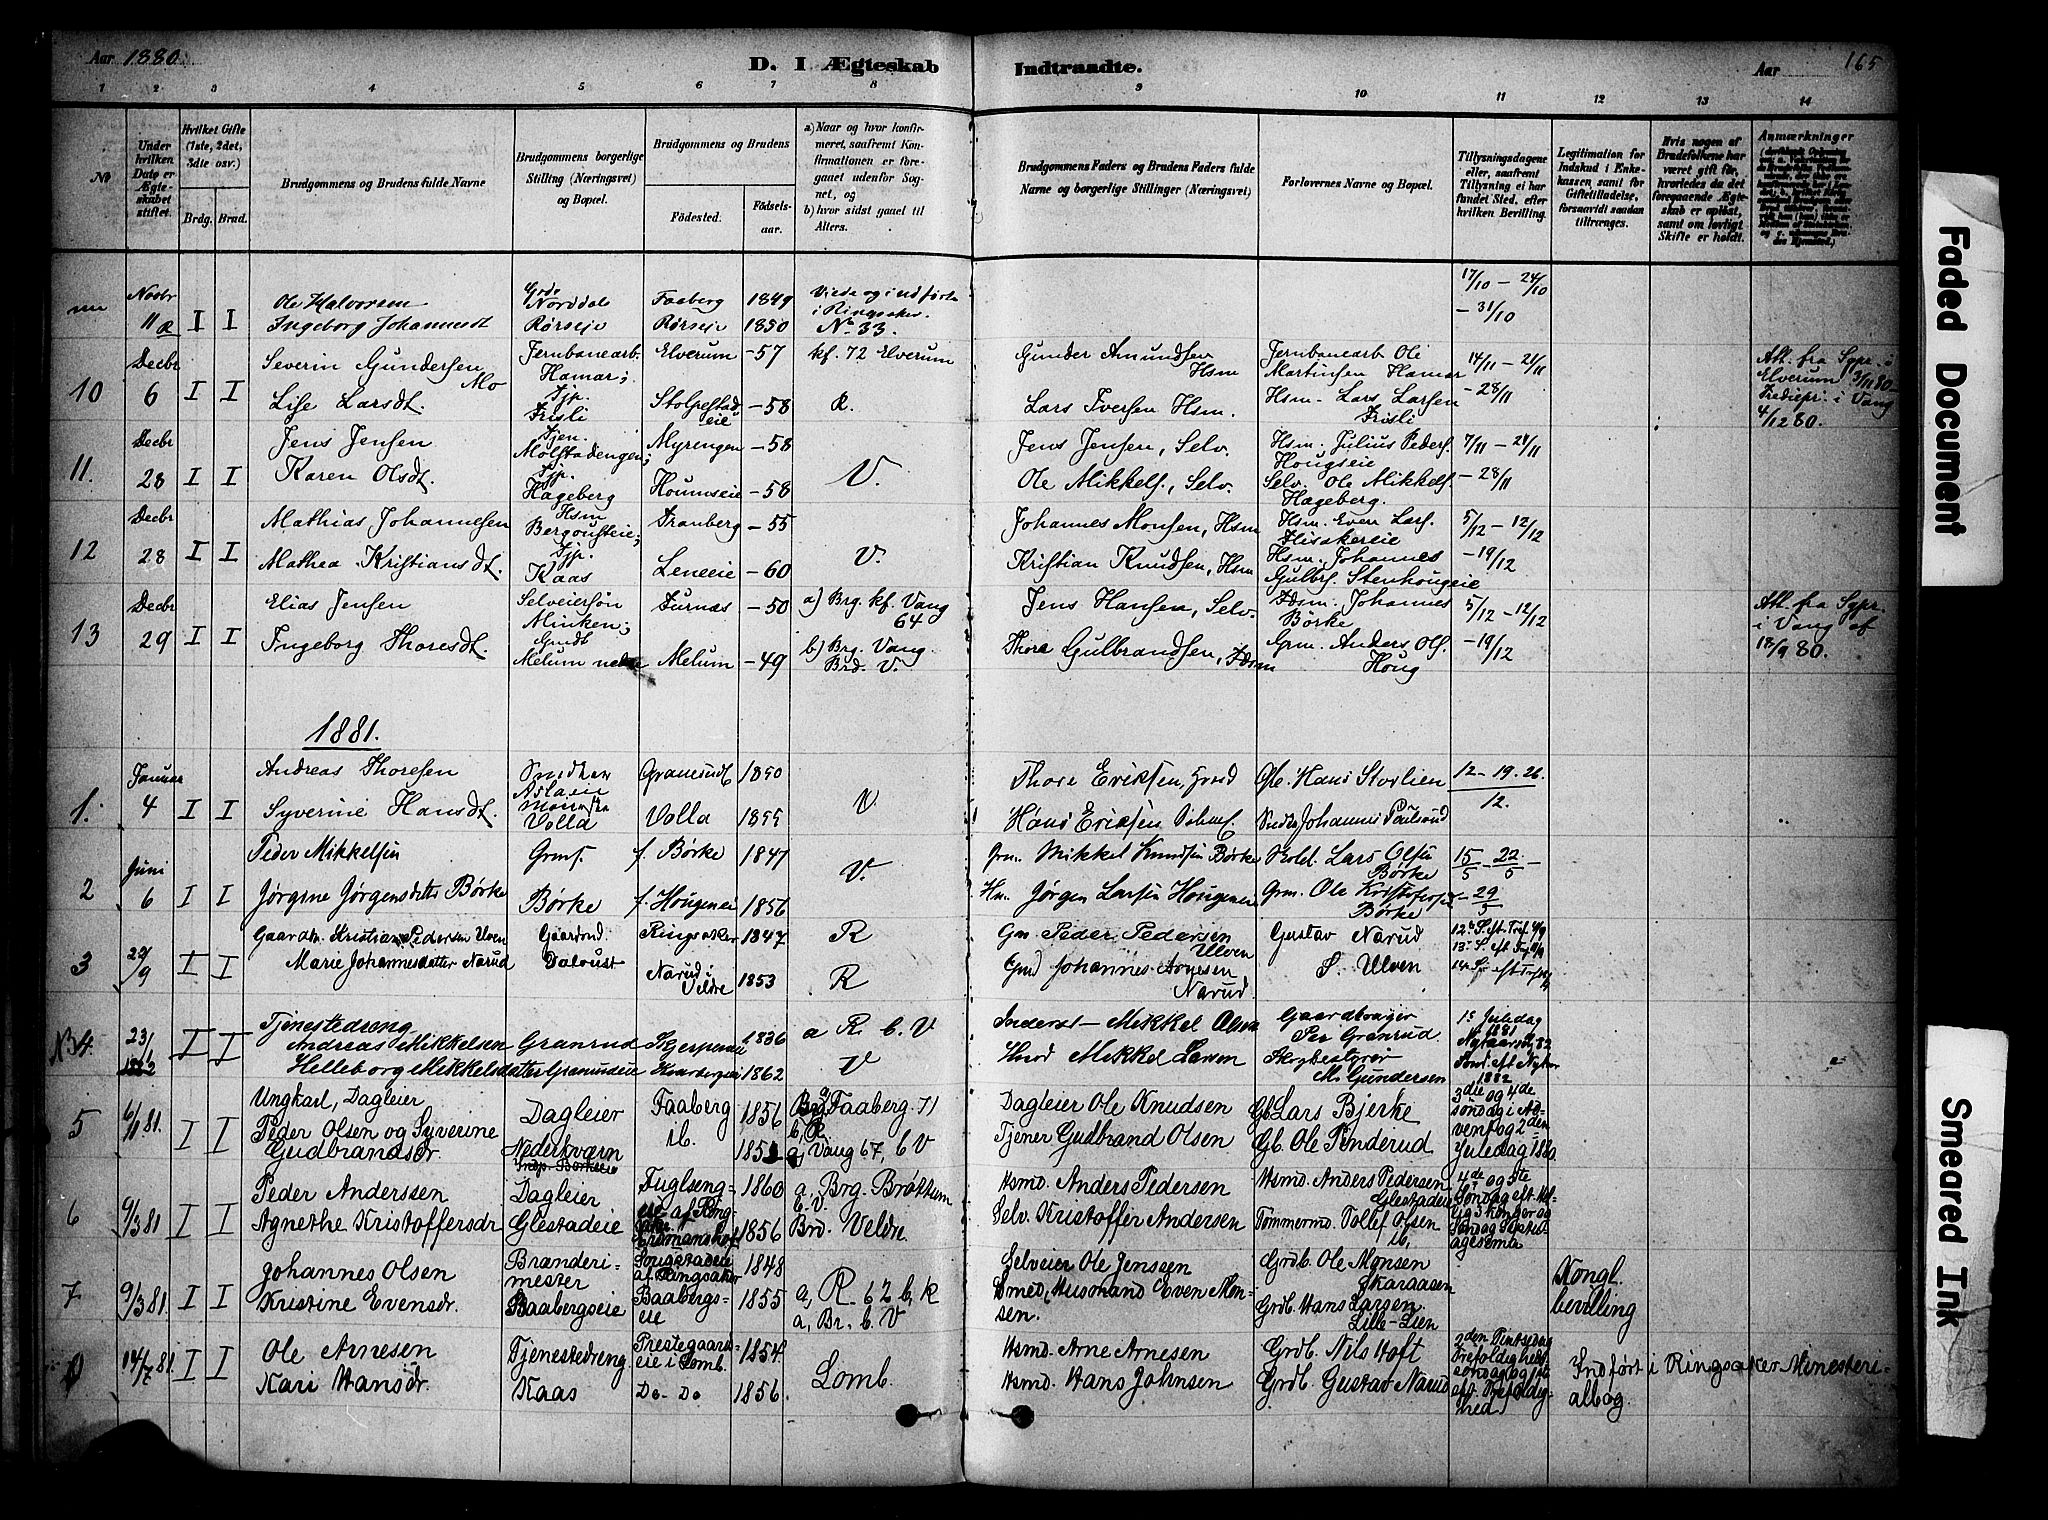 Aar 1880. D. I Ægteskab Indtraadte. Aar 165
1 2 3 4 5 6 7 8 9 10 11 12 13 14
No
Under hvilken Dato er Ægteskabet stiftet.
Hvilket Gifte (1ste, 2det, 3die osv.)
Brdg. Brud.
Brudgommens og Brudens fulde Navne
Brudgommens borgerlige Stilling (Næringsvei) og Bopæl.
Brudgommens og Brudens
Födested. Födselsaar.
a) Naar og hvor konfirmeret, saafremt Konfirmationen er foregaaet udenfor Sognet, og
b) hvor sidst gaaet til Alters.
Brudgommens Faders og Brudens Faders fulde Navne og borgerlige Stillinger (Næringsvei)
Forlovernes Navne og Bopæl.
Tillysningsdagene eller, saafremt Tillysning ei har fundet Sted, efter hvilken Bevilling.
Legitimation for Indskud i Enkekassen samt for Giftetilladelse, forsaavidt saadan tiltrænges.
Hvis nogen af Brudefolkene har været gift för, hvorledes da det foregaaende Ægteskab er oplöst, samt om lovligt Skifte er holdt.
Anmærkninger
Novbr 11 I I Ole Halvorsen Norddal Faaberg 1849 Viede og indførte i Ringsaker 17/10 - 24/10
Ingeborg Johannesdt Rørseie Rørseie 1850 No 33. - 31/10
10 Decbr 6 I I Severin Gundersen Mo Jernbanearb. Hamar; Elverum - 57 kf. 72 Elverum Gunder Amundsen Hsm Jernbanearb Ole Martinsen Hamar 14/11 - 21/11 Att. fra Sypr. i Elverum 3/11 80
Lise Larsdt. Tjp. Frisli Stolpestadeie - 58 R. Lars Iversen Hsm. Hsm. Lars Larsen Frisli - 28/11 i Vang 4/12 80.
11. Decbr 28 I I Jens Jensen Tjen. Molstadengen; Myrengen - 58 V. Jens Jensen, Selv. Hsm. Julius Peders. Hougseie 7/11 - 21/11
Karen Olsdt. Tjp. Hageberg Houmseie - 58 Ole Mikkels., Selv. Selv. Ole Mikkels. Hageberg. - 28/11
12 Decbr 28 I I Mathias Johannesen Hsm Bergousteie; Tranberg - 55 V. Johannes Monsen, Hsm Hsm. Even Lars. 5/12 - 12/12
Mathea Kristiansdt. Tjp. Kaas Leneeie - 60 Kristian Knudsen, Hsm Hsm. Johannes Gulbrs. Stenhougeie - 19/12
13 Decbr 29 I I Elias Jensen Selveiersøn Minken; Furnæs - 50 a) Brg. kf. Vang 64 Jens Hansen, Selv. Johannes Børke 5/12 - 12/12 Att. fra Sypr. i Vang af 18/9 80.
Ingeborg Thoresdt. Melum nedre Melum - 49 b) Brg. Vang. Brd. V. Thore Gulbrandsen, Grm. Anders Ols. Houg - 19/12
1881.
1. Januar 4 I I Andreas Thoresen Granerud 1850 V. Thore Eriksen, Hans Storlien 12 - 19. 26.
Syverine Hansdt. Volla Volla 1855 Hans Eriksen Johannes Paulsrud 12.
2 Juni 6 I I Peder Mikkelsen Grms. f. Børke 1847 V. Grm. Mikkel Knudsen Børke Lars Olsen Børke 15/5 - 22/5 -
Jørgine Jørgensdatter Børke Børke f. Hougenei 1856 Hm. Jørgen Larsen Hougenei Grm. Ole Kristofersen Børke - 29/5
3 29/9 I I Gaardm. Kristian Pedersen Ulven Gaardmd. Ringsaker 1847 R Gm. Peder Pedersen Ulven Gustav Narud 12te S. eft Tref 4/9
Marie Johannesdatter Narud Daloust Narud i Veldre 1853 R Gmd Johannes Arnesen Narud. S. Ulven 13de S. eft Tref 14de S. eft Tref
N 34. 23/1 1882 I I Tjenestedreng Andreas Mikkelsen Granrud Skjerpenei 1836 a R. b. V Inderst - Mikkel Olsen Gaardbruger Per Granrud 1ste Juledag 1881 Nytaarsdag 82
Helleborg Mikkelsdatter Granrudeie 1862 V Hmd Mikkel Larsen M. Gundersen Sønd. eft Nytaar 1882
5 6/1 81. I I Ungkarl, Dagleier Peder Olsen og Syverine Gudbrandsdr. Dagleier Nederkværn Faaberg ib. 1856 Faaberg 71 b, R Dagleier Ole Knudsen Gb. Lars Bjerke 3die og 4de søndag i Advent og 2den Juledag 1880
a, Vang 67, b V Tjener Gudbrand Olsen Gb. Ole Penderud
6 9/3 81 I I Peder Anderssen Dagleier Fuglsengeie af Ringsaker 1860 a, Brg. Brøttum b. V. Hsmd. Anders Pedersen Hsmd. Anders Pedersen Glestadeie 4de og 5te Søndag eft. Helg. 3 Konger og Søndag Septuagesema
Agnethe Kristoffersdr Glestadeie 1856 Brd. Veldre Selv. Kristoffer Andersen Tømmermd. Tollef Olsen ib.
7 9/3 81. I I Johannes Olsen Brænderimester af Ringsaker 1848 a, R 62 b, R Selveier Ole Jenssen Grdb. Ole Monsen Skaraasen Kongl. bevilling
Kristine Evensdr. Baabergseie Baabergseie 1855 a, Br. b. V Smed, Husmand Even Monsen. Grdb. Hans Larsen Lille-Lien
14/7 81. I I Ole Arnesen Tjenestedreng Prestegaardseie i Lomb. 1854. Lomb. Hsmd. Arne Arnesen Grdb. Nils Hoft 2den Pintsedag Trefoldighedssøndag og 1ste eft. Trefoldighed Indført i Ringsaker Ministerialbog
Kari Hansdr. Kaas Do - Do 1856. Hsmd. Hans Johnsen Grdb. Gustav Narud
Faded Document
Smeared Ink